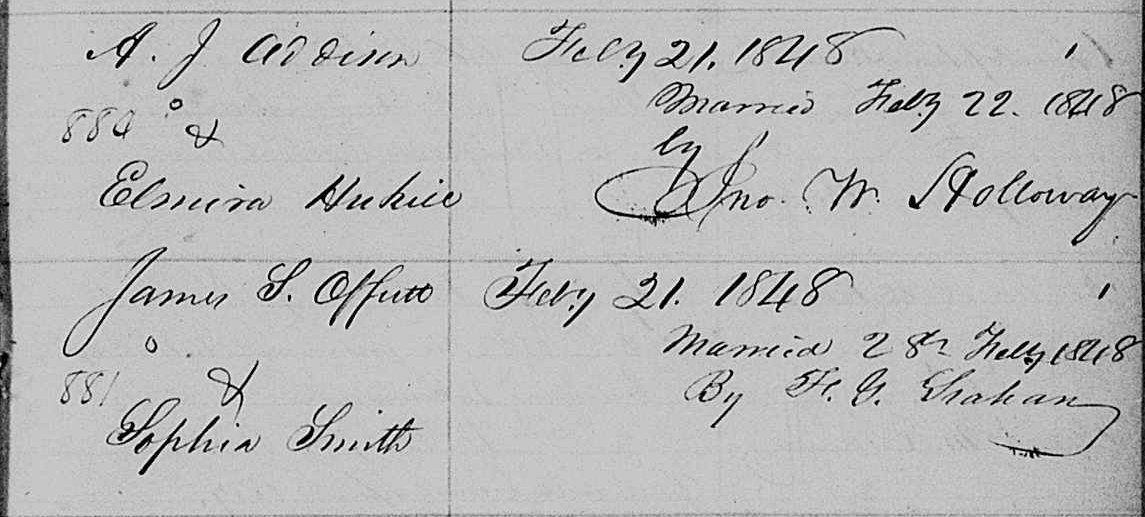 A. J. Addison Feby 21. 1848
Married Feby 22. 1848
880 &
by
Elmira Hukill Jno. W. Holloway
James S. Offutt Feby 21. 1848
Married 28th Feby 1848
881 & By F. G.
Sophia Smith